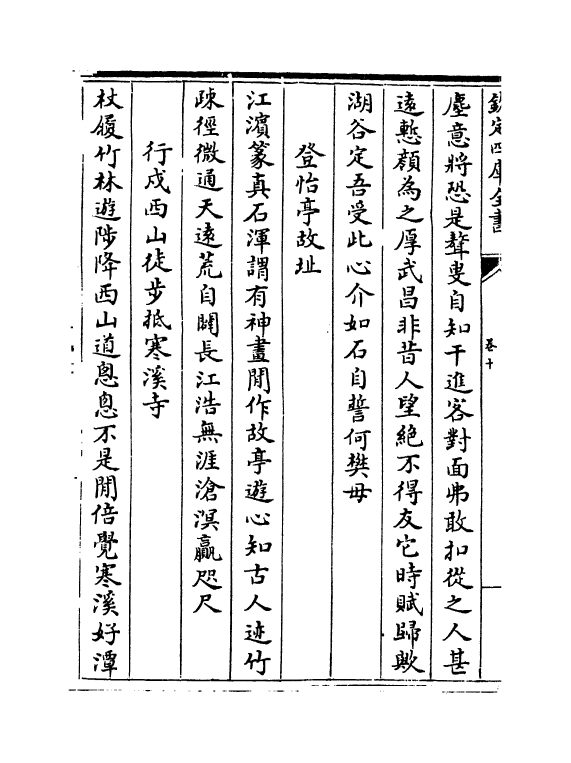 欽定四庫全書
卷十
塵意將恐是聱叟自知干進客對面弗敢扣從之人甚
遠慙顔為之厚武昌非昔人望絶不得友它時賦歸歟
湖谷定吾受此心介如石自誓何樊毋
登怡亭故址
江濱篆真石渾謂有神畫閒作故亭遊心知古人迹竹
疎徑微通天遠荒自闢長江浩無涯滄溟贏咫尺
行戍西山徒步抵寒溪寺
杖履竹林遊陟降西山道悤悤不是閒倍覺寒溪好潭